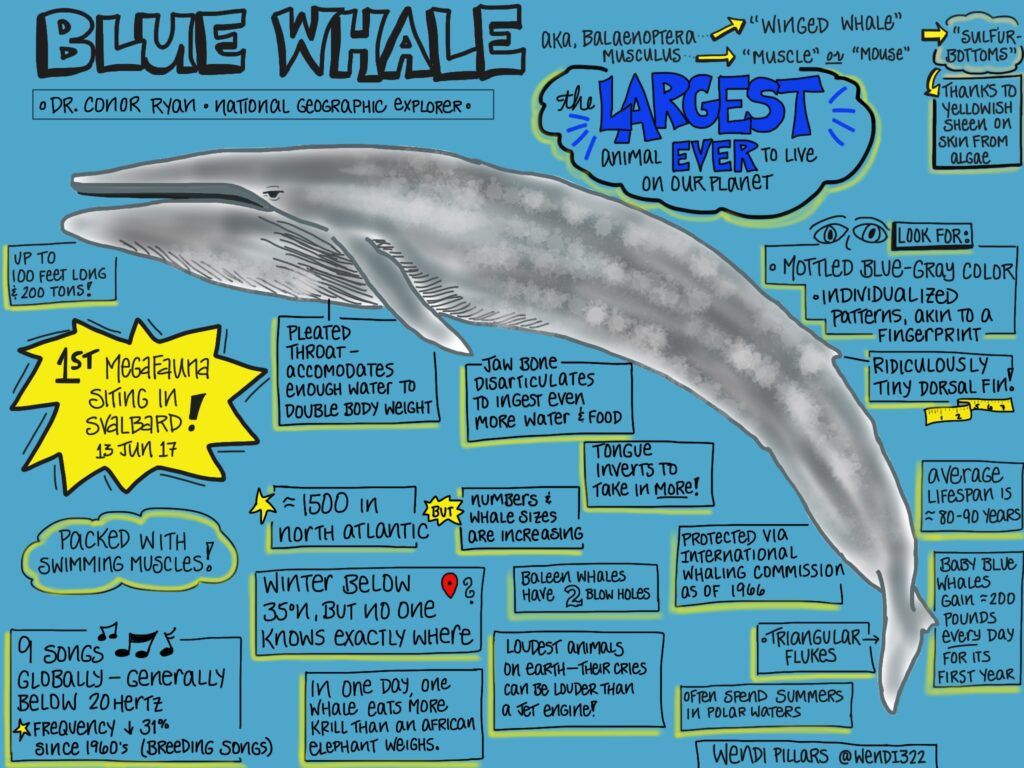 BLUE WHALE
• DR. CONOR RYAN • NATIONAL GEOGRAPHIC EXPLORER •
AKA, BALAENOPTERA → "WINGED WHALE"
MUSCULUS → "MUSCLE" OR "MOUSE"
→ "SULFUR-
BOTTOMS"
THANKS TO
YELLOWISH
SHEEN ON
SKIN FROM
ALGAE
the LARGEST
ANIMAL EVER TO LIVE
ON OUR PLANET
UP TO
100 FEET LONG
& 200 TONS!
LOOK FOR:
• MOTTLED BLUE-GRAY COLOR
• INDIVIDUALIZED
PATTERNS, AKIN TO A
FINGERPRINT
RIDICULOUSLY
TINY DORSAL FIN!
1 2 6 7
1ST MEGAFAUNA
SITING IN
SVALBARD!
13 JUN 17
PLEATED
THROAT –
ACCOMODATES
ENOUGH WATER TO
DOUBLE BODY WEIGHT
JAW BONE
DISARTICULATES
TO INGEST EVEN
MORE WATER & FOOD
TONGUE
INVERTS TO
TAKE IN MORE!
AVERAGE
LIFESPAN IS
≈ 80-90 YEARS
≈ 1500 IN
NORTH ATLANTIC
BUT
NUMBERS &
WHALE SIZES
ARE INCREASING
PACKED WITH
SWIMMING MUSCLES!
PROTECTED VIA
INTERNATIONAL
WHALING COMMISSION
AS OF 1966
BABY BLUE
WHALES
GAIN ≈200
POUNDS
EVERY DAY
FOR ITS
FIRST YEAR
WINTER BELOW ?
35°N, BUT NO ONE
KNOWS EXACTLY WHERE
BALEEN WHALES
HAVE 2 BLOW HOLES
9 SONGS
GLOBALLY – GENERALLY
BELOW 20 HERTZ
FREQUENCY ↓ 31%
SINCE 1960'S (BREEDING SONGS)
LOUDEST ANIMALS
ON EARTH—THEIR CRIES
CAN BE LOUDER THAN
A JET ENGINE!
• TRIANGULAR →
FLUKES
IN ONE DAY, ONE
WHALE EATS MORE
KRILL THAN AN AFRICAN
ELEPHANT WEIGHS.
OFTEN SPEND SUMMERS
IN POLAR WATERS
WENDI PILLARS @WENDI322